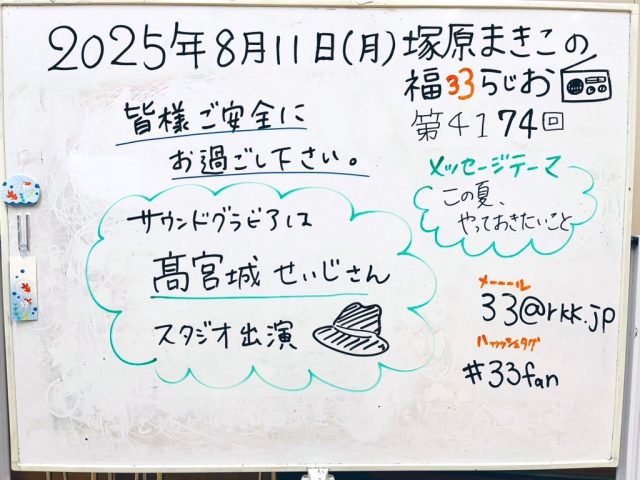 2025年8月11日(月)塚原まきこの
福33らじお
第4174回
皆様ご安全に
お過ごし下さい。
メッセージテーマ
この夏、
やっておきたいこと
サウンドグラビアは
髙宮城せいじさん
スタジオ出演
メーーール
33@rkk.jp
ハッッシュタグ
#33fan